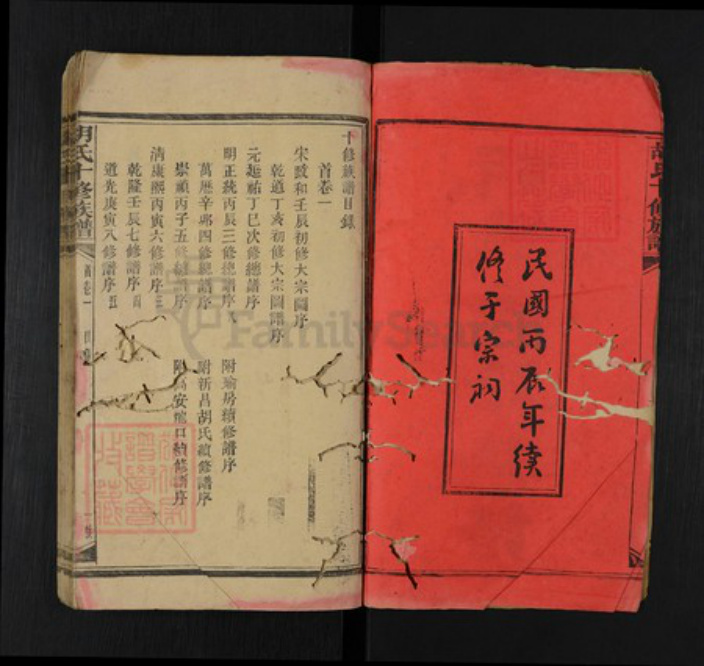 民國丙辰年續
修于宗祠
十修族譜目錄
首卷一
宋政和壬辰初修大宗圖序
乾道丁亥初修大宗圖譜序
元延祐丁巳次修總譜序
明正統丙辰三修總譜序 附瑜房續修譜序
萬歷辛卯四修總譜序 附新昌胡氏續修譜序
崇禎丙子五修總譜序 附高安城口續修譜序
清康熙丙寅六修譜序三
乾隆壬辰七修譜序四
道光庚寅八修譜序五
胡氏十修族譜
首卷一
目錄
FamilySearch